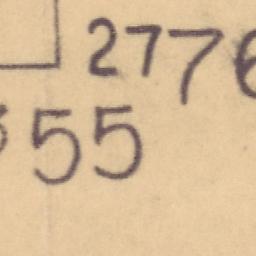 2776
55